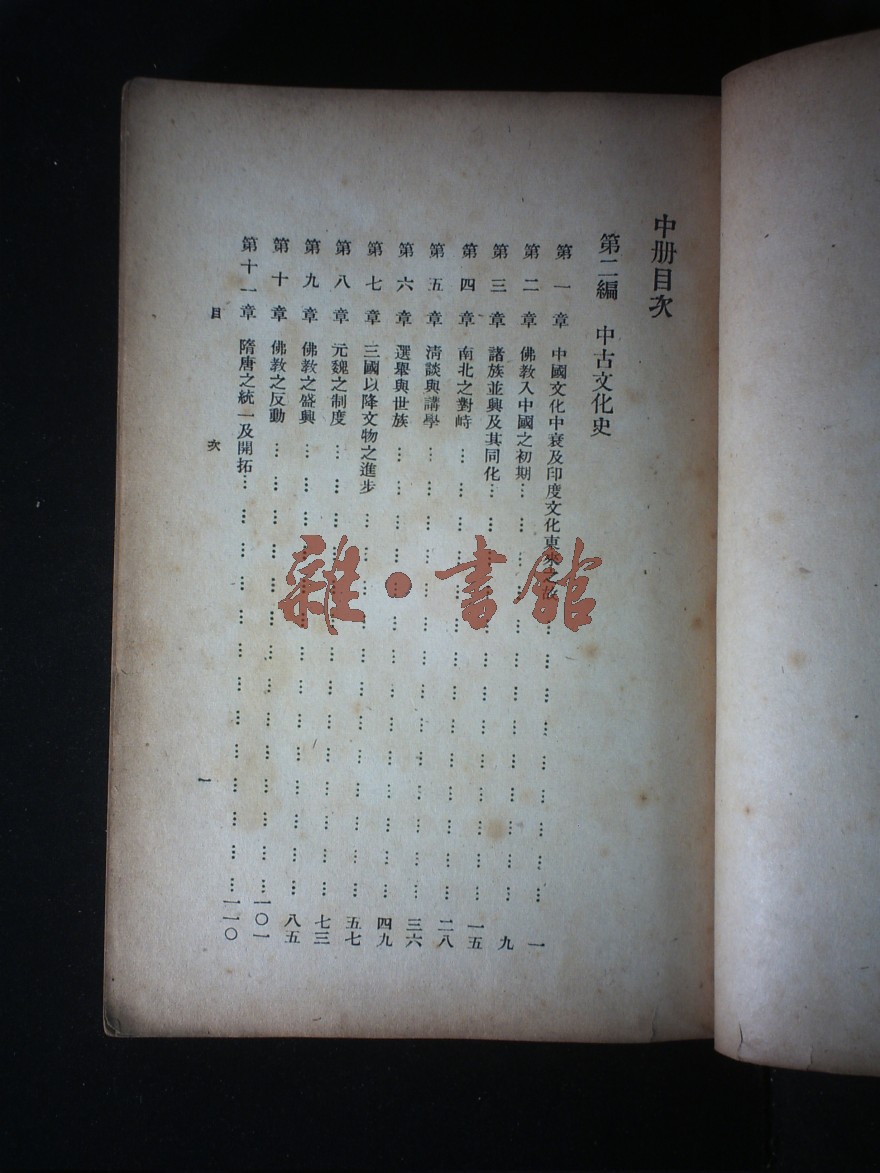 中册目次
第二編 中古文化史
第一章 中國文化中衰及印度文化東來之故……一
第二章 佛教入中國之初期……九
第三章 諸族並興及其同化……一五
第四章 南北之對峙……二八
第五章 清談與講學……三六
第六章 選舉與世族……四九
第七章 三國以降文物之進步……五七
第八章 元魏之制度……七三
第九章 佛教之盛興……八五
第十章 佛教之反動……一〇一
第十一章 隋唐之統一及開拓……一一〇
目次
一
雜·書館